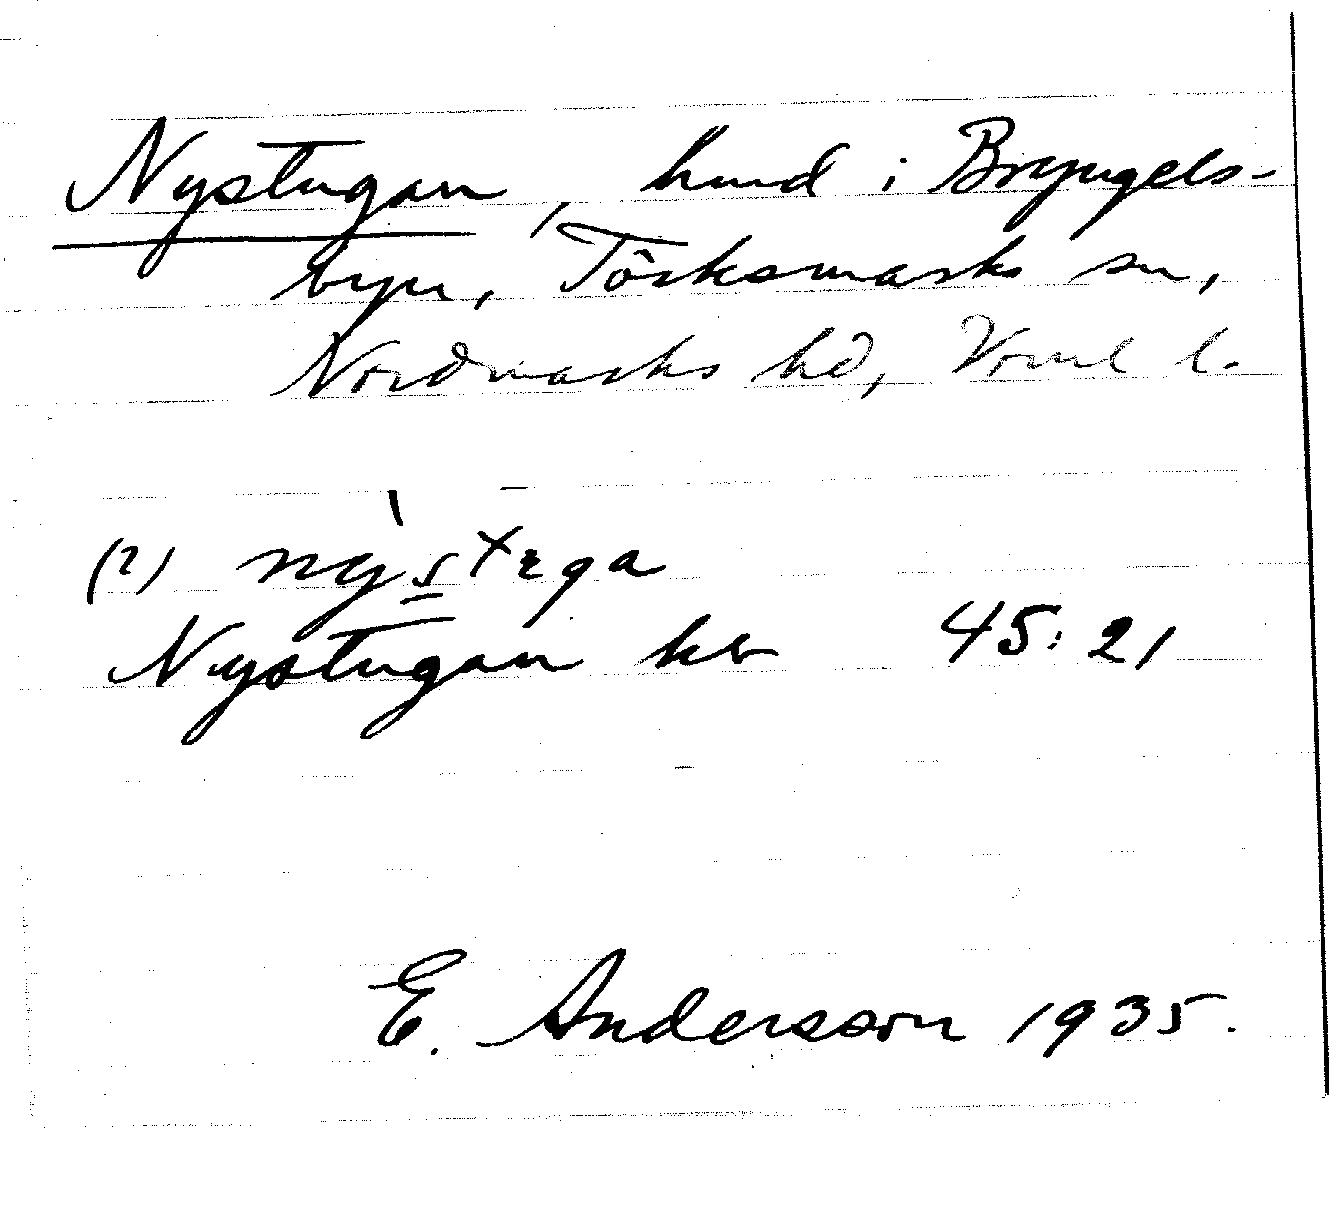 Nystugan, hmd i Bryngels-
byn, Töcksmarks sn,
Nordmarks hd, Verml l.
(2)
Nystugan kb 45:21
E. Anderson 1935.